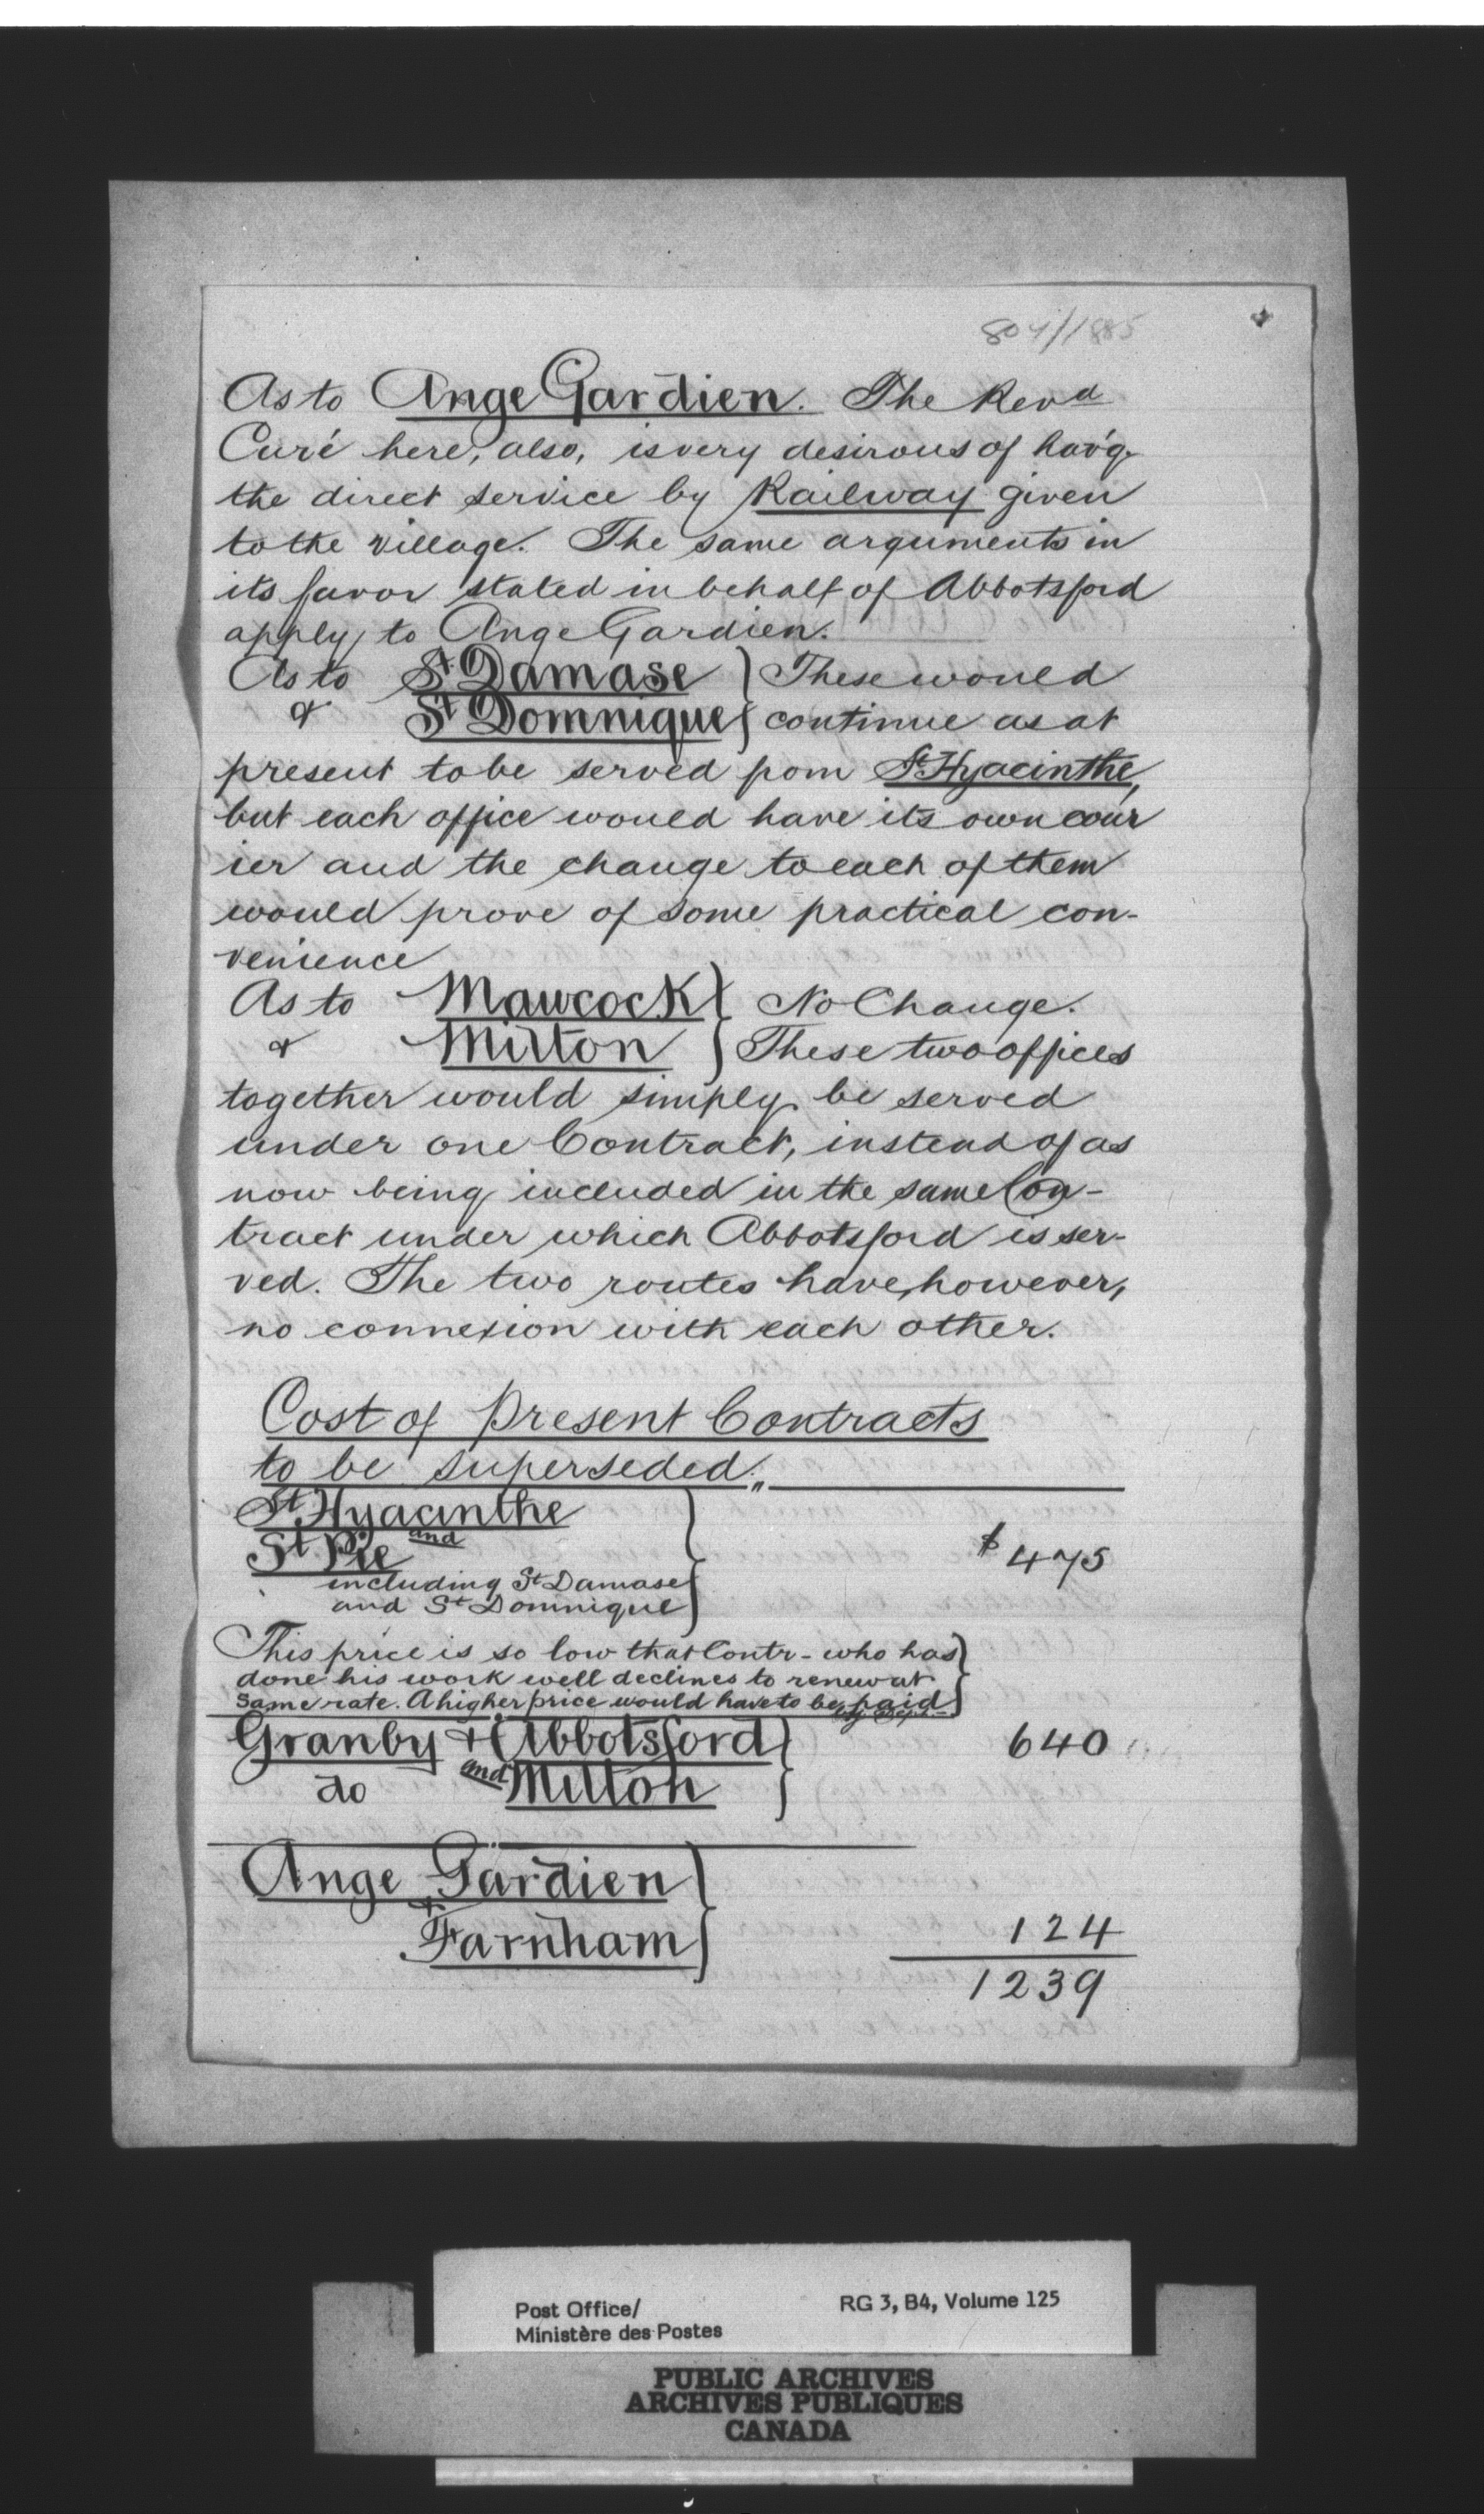 804/1885
As to Ange Gardien. The Revd
Curé here, also, is very desirous of hav'g
the direct service by Railway given
to the village. The same arguments in
its favor stated in behalf of Abbotsford
apply to Ange Gardien.
As to St Damase } These would
& St Domnique } continue as at
present to be served from St Hyacinthe,
but each office would have its own cour
ier and the change to each of them
would prove of some practical con-
venience
As to Mawcock } No Change.
& Milton } These two offices
together would simply be served
under one Contract, instead of as
now being included in the same Con-
tract under which Abbotsford is ser-
ved. The two routes have, however,
no connexion with each other.
Cost of Present Contracts
to be superseded.
St Hyacinthe
and
St Pie $475
including St Damase
and St Domnique
This price is so low that Contr- who has
done his work well declines to renew at
same rate. A higher price would have to be paid
by Dept-
Granby & Abbotsford 640
do and Milton
Ange Gardien
&
Farnham 124
1239
Post Office/ RG 3, B4, Volume 125
Ministère des Postes
PUBLIC ARCHIVES
ARCHIVES PUBLIQUES
CANADA